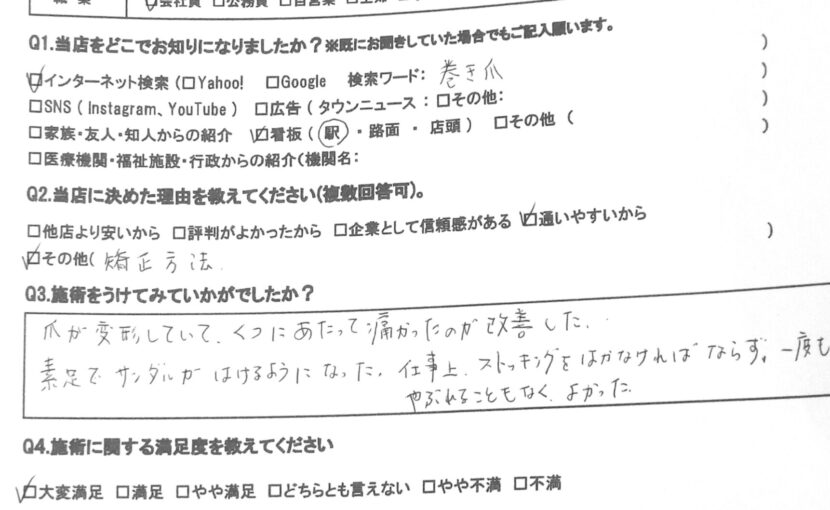 ☑会社員 □公務員 □自営業
Q1.当店をどこでお知りになりましたか?※既にお聞きしていた場合でもご記入願います。
☑インターネット検索(□Yahoo! □Google 検索ワード: 巻き爪 )
□SNS(Instagram、YouTube) □広告(タウンニュース:□その他: )
□家族・友人・知人からの紹介 ☑看板(駅・路面・店頭) □その他( )
□医療機関・福祉施設・行政からの紹介(機関名: )
Q2.当店に決めた理由を教えてください(複数回答可)。
□他店より安いから □評判がよかったから □企業として信頼感がある ☑通いやすいから
☑その他( 矯正方法. )
Q3.施術をうけてみていかがでしたか?
爪が変形していて、くつにあたって痛かったのが改善した.
素足でサンダルがはけるようになった. 仕事上、ストッキングをはかなければならず、一度も
やぶれることもなく、よかった.
Q4.施術に関する満足度を教えてください
☑大変満足 □満足 □やや満足 □どちらとも言えない □やや不満 □不満